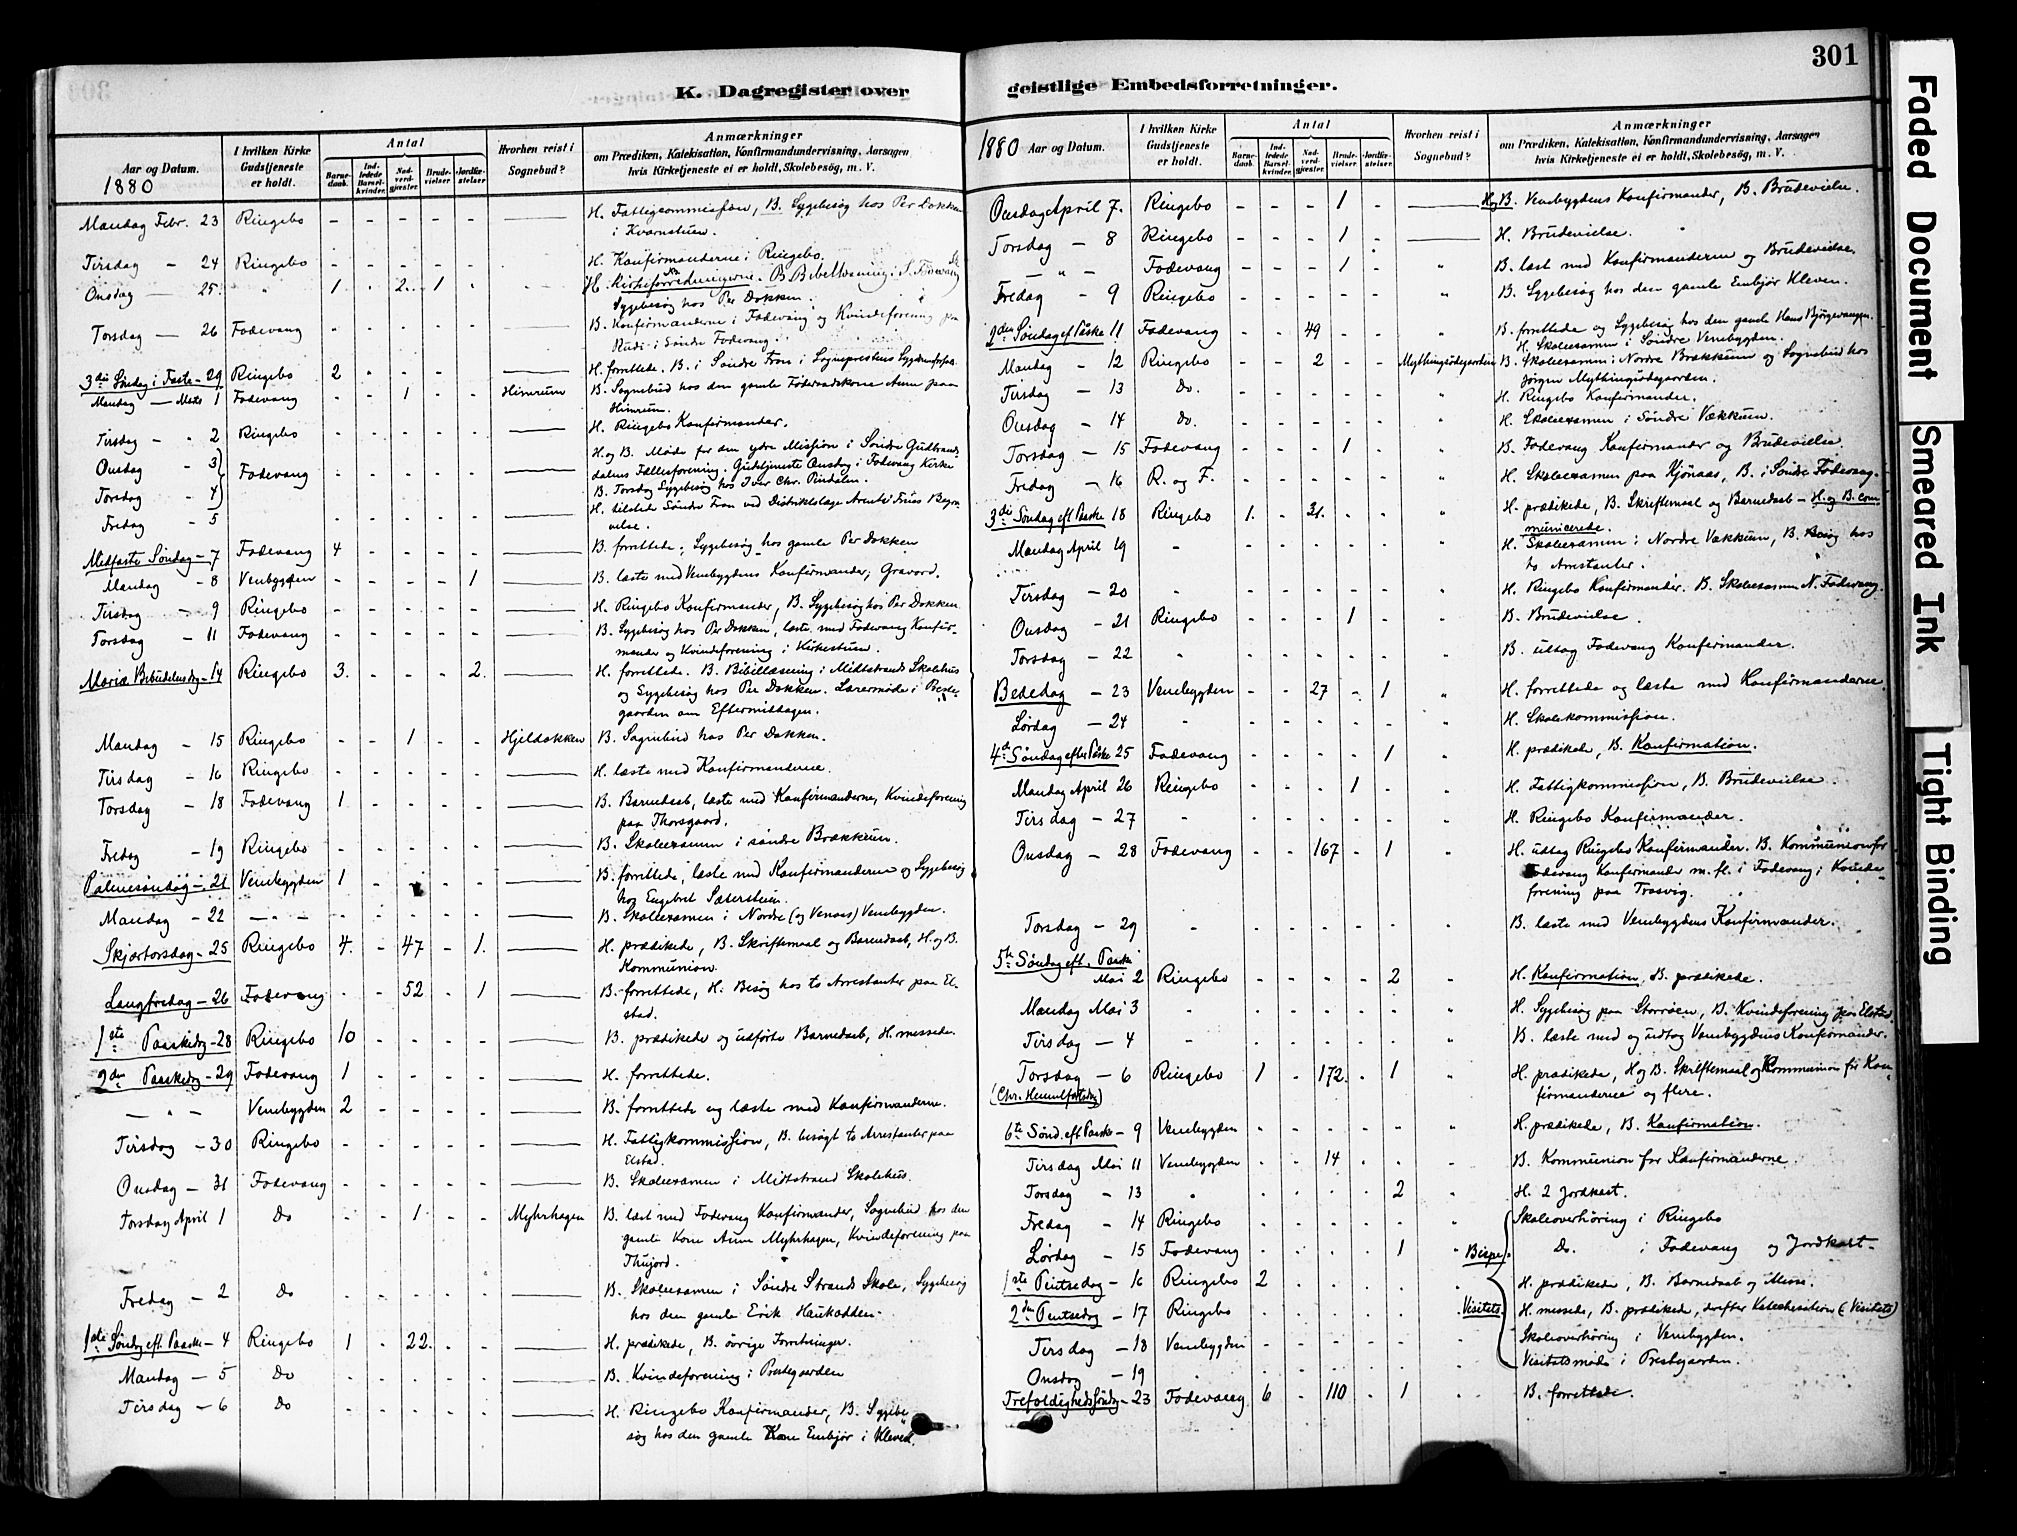 301
K. Dagregister over
geistlige Embedsforretninger.
Aar og Datum.
1880
I hvilken Kirke Gudstjeneste er holdt.
Antal
Barnedaab.
Indledede Barselkvinder.
Nadverdgjæster.
Brudevielser.
Jordfæstelser.
Hvorhen reist i Sognebud?
Anmærkninger
om Prædiken, Katekisation, Konfirmandundervisning, Aarsagen
hvis Kirketjeneste ei er holdt, Skolebesøg, m. V.
Mandag Febr. 23 Ringebo - - - - - H. Fattigcommission, B. Sygebesøg hos Per Dokken
i Kvarnstuen.
Tirsdag - 24 Ringebo - - - - - H. Konfirmanderne i Ringebo.
Onsdag - 25. " 1 - 2. 1 - H. Kirkeforretningerne. B. Bibellæsning i S. Fodevang
Sygebesøg hos Per Dokken.
Torsdag - 26 Fodevang - - - - - B. Konfirmanderne i Fodevang og Kvindeforening paa
Rudi i Søndre Fodevang.
3die Søndag i Faste - 29 Ringebo 2 - - - - H. forrettede. B. i Søndre Fron i Sognepræstens
Mandag - Marts 1 Fodevang - - 1 - - Himrum B. Sognebud hos den gamle Føderaadskone Anne paa
Himrum.
Tirsdag - " 2 Ringebo - - - - - H. Ringebo Konfirmander.
Onsdag - 3 } Fodevang - - - - - H. og B. Møde for den ydre Mission i Søndre Gudbrands
dalens Fællesforening. Gudstjeneste Onsdag i Fodevang Kirke
Torsdag - 4 B. Torsdag Sygebesøg hos Iver Chr. Rindalen.
Fredag - 5 - - - - - H. tilstede Søndre Fron ved Distriktslæge Arentz' Frues Begra
velse.
Midfaste Søndag - 7 Fodevang 4 - - - - B. forrettede; Sygebesøg hos gamle Per Dokken
Mandag - 8 Venebygden - - - - 1 B. læste med Venebygdens Konfirmander; Gravord.
Tirsdag - 9 Ringebo - - - - - H. Ringebo Konfirmander, B. Sygebesøg hos Per Dokken
Torsdag - 11 Fodevang - - - - - B. Sygebesøg hos Per Dokken, læste med Fodevang Konfir-
mander og Kvindeforening i Kirkestuen.
Mariæ Bebudelsesdag - 14 Ringebo 3. - - - 2. H. forrettede. B. Bibellæsning i Midtstrands Skolehus
og Sygebesøg hos Per Dokken. Lærermøde i Præste-
gaarden om Eftermiddagen.
Mandag - 15 Ringebo - - 1 - - Hjeldokken B. Sognebud hos Per Dokken.
Tirsdag - 16 Ringebo - - - - - H. læste med Konfirmanderne.
Torsdag - 18 Fodevang 1. - - - - B. Barnedaab, læste med Konfirmanderne, Kvindeforening
paa Thorsgaard.
Fredag - 19 Ringebo - - - - - B. Skoleexamen i søndre Brækkum.
Palmesøndag - 21 Venebygden 1 - - - B. forrettede, læste med Konfirmanderne og Sygebesøg
hos Engebret Sæterstuen.
Mandag - 22 - " - - - - - - B. Skoleexamen i Nordre (og Venaas) Venebygden.
Skjærtorsdag - 25 Ringebo 4. - 47 - 1. H. prædikede, B. Skriftemaal og Barnedaab, H. og B.
Kommunion.
Langfredag - 26 Fodevang - - 52 - 1 B. forrettede, H. Besøg hos to Arrestanter paa El-
stad.
1ste Paaskedag - 28 Ringebo 10 - - - - B. prædikede og udførte Barnedaab, H. messede.
2den Paaskedag - 29 Fodevang 1 - - - - H. forrettede.
- " - Venebygden 2 - - - - B. forrettede og læste med Konfirmanderne.
Tirsdag - 30 Ringebo - - - - - H. Fattigkommission, B. besøgt to Arrestanter paa
Elstad.
Onsdag - 31 Fodevang - - - - - B. Skoleexamen i Midtstrand Skolehus.
Torsdag April 1 Do - - 1 - - Myhrhagen B. læst med Fodevang Konfirmander, Sognebud hos den
gamle Kone Anne Myhrhagen, Kvindeforening paa
Thujord.
Fredag - 2 Do - - - - - B. Skoleexamen i Søndre Strands Skole, Sygebesøg
hos den gamle Erik Haukodden.
1ste Søndag eft. Paaske - 4 Ringebo 1 - 22. - - H. prædikede, B. øvrige Forretninger.
Mandag - 5 Do - - - - - B. Kvindeforening i Prestegaarden
Tirsdag - 6 Do - - - - - H. Ringebo Konfirmander, B. Sygebe
søg hos den gamle Kone Embjør i Kleven.
1880 Aar og Datum.
I hvilken Kirke Gudstjeneste er holdt.
Antal
Barnedaab.
Indledede Barselkvinder.
Nadverdgjæster.
Brudevielser.
Jordfæstelser.
Hvorhen reist i Sognebud?
Anmærkninger
om Prædiken, Katekisation, Konfirmandundervisning, Aarsagen
hvis Kirketjeneste ei er holdt, Skolebesøg, m. V.
Onsdag April 7. Ringebo - - - 1 - H. og B. Venebygdens Konfirmander, B. Brudevielse.
Torsdag - 8 Ringebo - - - 1 - H. Brudevielse.
- " - Fodevang - - - 1 - " B. læst med Konfirmanderne og Brudevielse.
Fredag - 9 Ringebo - - - - - " B. Sygebesøg hos den gamle Embjør Kleven.
2den Søndag eft Påske 11 Fodevang - - 49 - - " B. forrettede og Sygebesøg hos den gamle Hans Bjørgevangen.
H. Skoleexamen i Søndre Venebygden.
Mandag - 12 Ringebo - - 2 - - Mythingsødegaarden B. Skoleexamen i Nordre Brækkum og Sognebud hos
Jørgen Mythingsødegaarden.
Tirsdag - 13 Do. - - - - - " H. Ringebo Konfirmander.
Onsdag - 14 do. - - - - - " H. Skoleexamen i Søndre Vækkum.
Torsdag - 15 Fodevang - - - 1 - " B. Fodevang Konfirmander og Brudevielse
Fredag - 16 R. og F. - - - - - " H. Skoleexamen paa Kjønaas, B. i Søndre Fodevang.
3die Søndag eft Paaske 18 Ringebo 1. - 31. - - " H. prædikede, B. Skriftemaal og Barnedaab - H. og B. com
municerede.
Mandag April 19 " - - - - - " H. Skoleexamen i Nordre Vækkum, B. Besøg hos
to Arrestanter.
Tirsdag - 20 " - - - - - " H. Ringebo Konfirmander. B. Skoleexamen N. Fodevang.
Onsdag - 21 Ringebo - - - 1 - " B. Brudevielse.
Torsdag - 22 " - - - - - " B. udtog Fodevang Konfirmander.
Bededag - 23 Venebygden - - 27 - 1 " H. forrettede og læste med Konfirmanderne.
Lørdag - 24 " - - - - - " H. Skolekommission.
4de Søndag efter Påske 25 Fodevang - - - - 1 " H. prædikede, B. Konfirmation.
Mandag April 26 Ringebo - - - 1 - " H. Fattigkommission, B. Brudevielse.
Tirsdag - 27 " - - - - - " H. Ringebo Konfirmander.
Onsdag - 28 Fodevang - - 167 - 1 " H. udtog Ringebo Konfirmander. B. Kommunion for
Fodevang Konfirmander m. fl. i Fodevang; Kvinde-
forening paa Trosvig.
Torsdag - 29 " - - - - - " B. læste med Venebygdens Konfirmander.
5te Søndag eft. Paaske
Mai 2 Ringebo - - - - 2 " H. Konfirmation, B. prædikede.
Mandag Mai 3 " - - - - - " H. Sygebesøg paa Storrøen, B. Kvindeforening paa Elstad.
Tirsdag - 4 " - - - - - " B. læste med og udtog Venebygdens Konfirmander.
Torsdag - 6 Ringebo 1 - 172. - 1 " H. prædikede, H og B. Skriftemaal og Kommunion for Kon
(Chr. Himmelfartsdag) firmanderne og flere.
6te Sønd. eft Paaske - 9 Venebygden - - - - - " H. prædikede, B. Konfirmation.
Tirsdag Mai 11 Venebygden - - 14 - - " B. Kommunion for Konfirmanderne.
Torsdag - 13 " - - - - 2 " H. 2 Jordkast.
Fredag - 14 Ringebo - - - - - " Skoleoverhøring i Ringebo
Lørdag - 15 Fodevang - - - - 1 " Bispe Do. i Fodevang og Jordkast.
1ste Pintsedag - 16 Ringebo 2 - - - - H. prædikede, B. Barnedaab og Messe.
2den Pintsedag - 17 Ringebo - - - - - Visitats. H. messede, B. prædikede, derefter Katechisation (Visitats)
Tirsdag - 18 Venebygden - - - - - Skoleoverhøring i Venebygden.
Onsdag - 19 - - - - - Visitatsmøde i Prestegaarden.
Trefoldigheds Søndag - 23 Fodevang 6 - 110 - 1 " B. forrettede.
Faded Document
Smeared Ink
Tight Binding